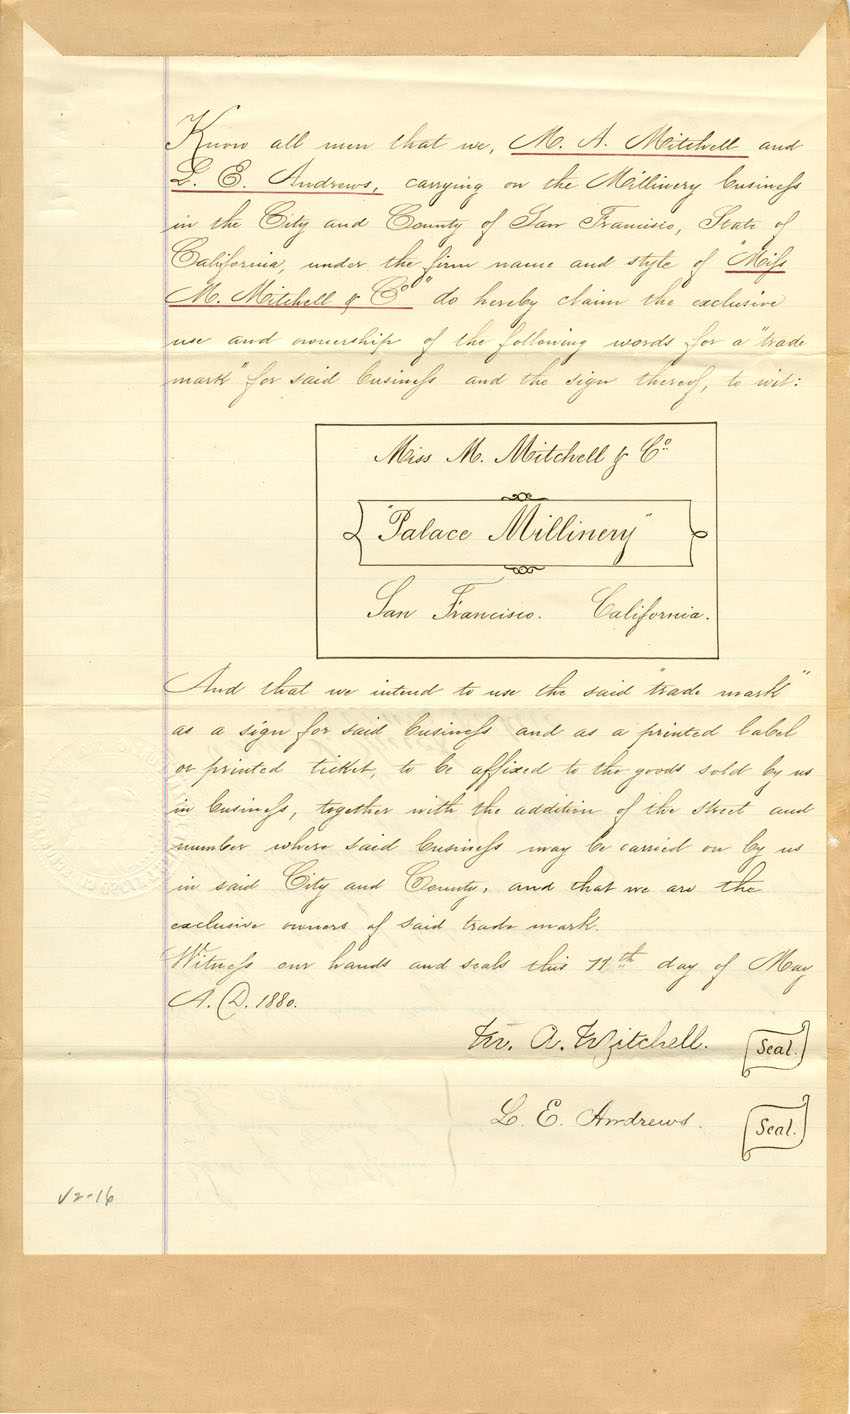 Know all men that we, M. A. Mitchell and
L. E. Andrews, carrying on the Millinery business
in the City and County of San Francisco, State of
California, under the firm name and style of "Miss
M. Mitchell & Co" do hereby claim the exclusive
use and ownership of the following words for a "trade
mark" for said business and the sign thereof, to wit:
Miss M. Mitchell & Co.
"Palace Millinery"
San Francisco. California.
And that we intend to use the said "trade mark"
as a sign for said business and as a printed label
or printed ticket, to be affixed to the goods sold by us
in business, together with the addition of the street and
number where said business may be carried on by us
in said City and County, and that we are the
exclusive owners of said trade mark.
Witness our hands and seals this 11th day of May
A. D. 1880.
M. A. Mitchell. Seal.
L. E. Andrews. Seal.
V2-16